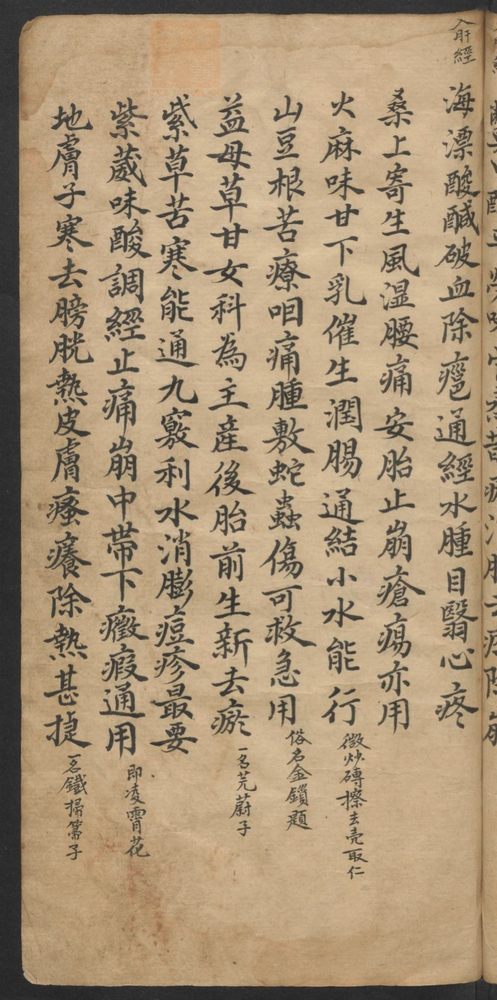 肝經
海漂酸鹹破血除疸通經水腫目翳心疼
桑上寄生風湿腰痛安胎止崩瘡瘍亦用
火麻味甘下乳催生潤腸通結小水能行
微炒磚擦去壳取仁
山豆根苦療咽痛腫敷蛇蟲傷可救急用
俗名金鎖題
益母草甘女科為主産後胎前生新去瘀
一名茺蔚子
紫草苦寒能通九竅利水消膨痘疹最要
紫葳味酸調經止痛崩中帶下癥瘕通用
即凌霄花
地膚子寒去膀胱熱皮膚瘙癢除熱甚捷
一名鐵掃箒子